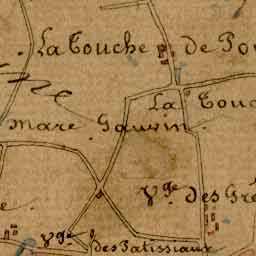 La Touche de Po
La Touc
Mare Gauvin
Vge Des Gré
e.
Vge Des Patissiaux